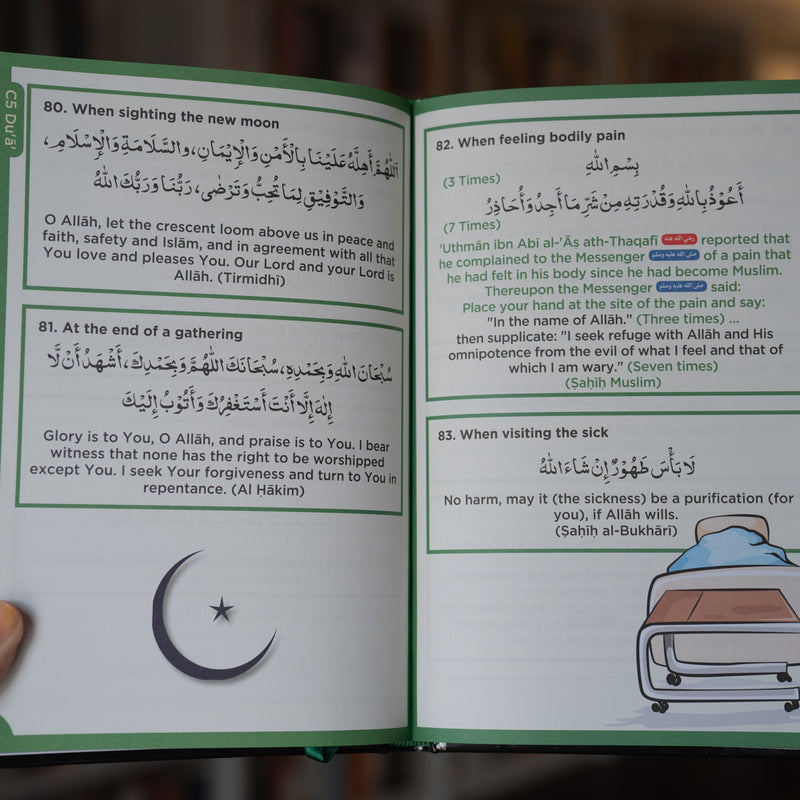 C5 Du'ā'
80. When sighting the new moon
اَللّٰهُمَّ أَهِلَّهُ عَلَيْنَا بِالْأَمْنِ وَالْإِيْمَانِ، والسَّلَامَةِ وَالْإِسْلَامِ،
وَالتَّوْفِيْقِ لِمَا تُحِبُّ وَتَرْضٰى، رَبُّنَا وَرَبُّكَ اللّٰهُ
O Allāh, let the crescent loom above us in peace and
faith, safety and Islām, and in agreement with all that
You love and pleases You. Our Lord and your Lord is
Allāh. (Tirmidhī)
81. At the end of a gathering
سُبْحَانَ اللّٰهِ وَبِحَمْدِهِ، سُبْحَانَكَ اللّٰهُمَّ وَبِحَمْدِكَ، أَشْهَدُ أَنْ لَّا
إِلٰهَ إِلَّا أَنْتَ أَسْتَغْفِرُكَ وَأَتُوْبُ إِلَيْكَ
Glory is to You, O Allāh, and praise is to You. I bear
witness that none has the right to be worshipped
except You. I seek Your forgiveness and turn to You in
repentance. (Al Ḥākim)
82. When feeling bodily pain
بِسْمِ اللّٰهِ
(3 Times)
أَعُوْذُ بِاللّٰهِ وَقُدْرَتِهِ مِنْ شَرِّ مَا أَجِدُ وَأُحَاذِرُ
(7 Times)
'Uthmān ibn Abī al-'Āṣ ath-Thaqafī رضي الله عنه reported that
he complained to the Messenger صلى الله عليه وسلم of a pain that
he had felt in his body since he had become Muslim.
Thereupon the Messenger صلى الله عليه وسلم said:
Place your hand at the site of the pain and say:
"In the name of Allāh." (Three times) ...
then supplicate: "I seek refuge with Allāh and His
omnipotence from the evil of what I feel and that of
which I am wary." (Seven times)
(Ṣaḥīḥ Muslim)
83. When visiting the sick
لَا بَأْسَ طَهُوْرٌ إِنْ شَاءَ اللّٰهُ
No harm, may it (the sickness) be a purification (for
you), if Allāh wills.
(Ṣaḥīḥ al-Bukhārī)